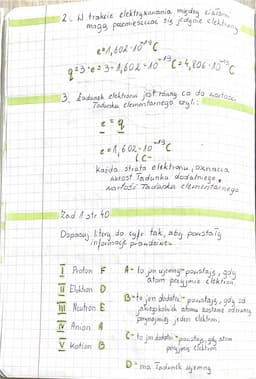 2. W trakcie elektryzowania między ciałami
mogą przemieszczać się jedynie elektrony
e=1,602·10⁻¹⁹C
q=3·e=3·1,602·10⁻¹⁹C=4,806·10⁻¹⁹C
3. Ładunek elektronu jest równy co do wartości
Ładunku elementarnego czyli:
e = q
e=1,602·10⁻¹⁹C
Każda strata elektronu, oznacza
wzrost Ładunku dodatniego o
wartość Ładunku elementarnego
Zad 1 str 40
Dopasuj litery do cyfr tak, aby powstały
informacje prawdziwe
I Proton F
II Elektron D
III Neutron E
IV Anion A
V Kation B
A- to jon ujemny- powstaje, gdy
atom przyjmie elektron.
B- to jon dodatni- powstaje, gdy od
atomu zostanie odzwany
przynajmniej jeden elektron.
C- to jon dodatni- powstaje, gdy atom
przyjmie elektron
D- ma Ładunek ujemny